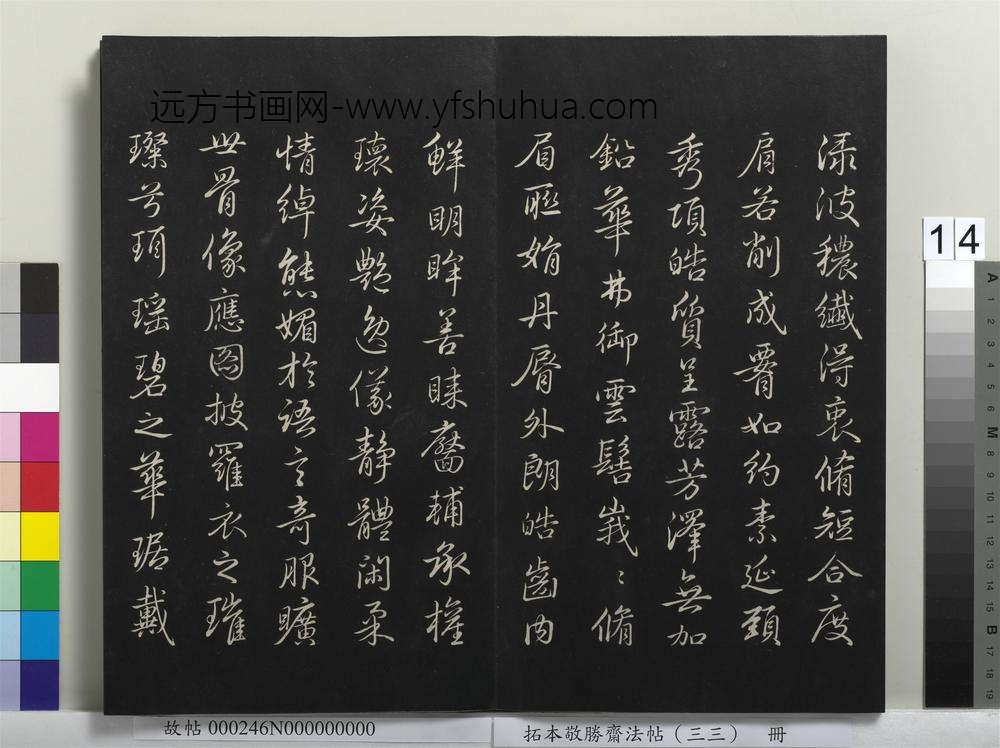 远方书画网-www.yfshuhua.com
渌波穠纖得衷脩短合度
肩若削成腰如約素延頸
秀項皓質呈露芳澤無加
鉛華弗御雲髻峩〻脩
眉聯娟丹脣外朗皓齒内
鮮明眸善睞靨輔承權
瓌姿艷逸儀静體閑柔
情綽態媚於語言奇服曠
世骨像應圖披羅衣之璀
璨兮珥瑶碧之華琚戴
14
A 1 2 3 4 5 6 M 8 9 10 11 12 13 14 15 B 17 18 19
故帖 000246N000000000
拓本敬勝齋法帖（三三） 冊